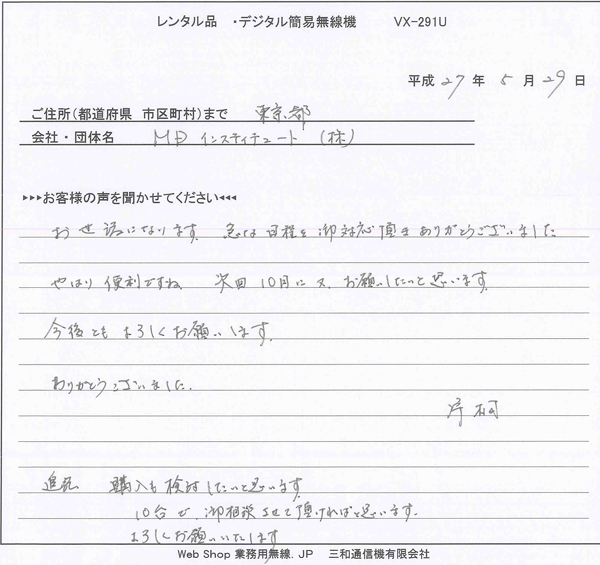 レンタル品 ・デジタル簡易無線機 VX-291U
平成 27 年 5 月 29 日
ご住所(都道府県 市区町村)まで 東京都
会社・団体名 MD インスティテュート (株)
▸▸▸お客様の声を聞かせてください◂◂◂
お世話になります。急な日程を御対応頂きありがとうございました
やはり便利ですね 次回10月に又、お願いしたいと思います。
今後ともよろしくお願いします。
ありがとうございました。
追記 購入も検討したいと思います
10台で御相談させて頂ければと思います。
よろしくお願いいたします
Web Shop 業務用無線.JP 三和通信機有限会社